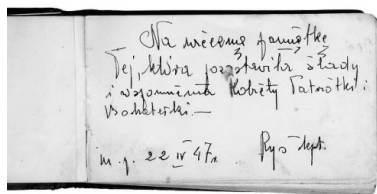 Na wieczną pamiątkę
Tej, która pozostawiła ślady
i wspomnienia Kobiety Patriotki i
bohaterki.—
m. p. 22 IV 47r. Ryś kpt.